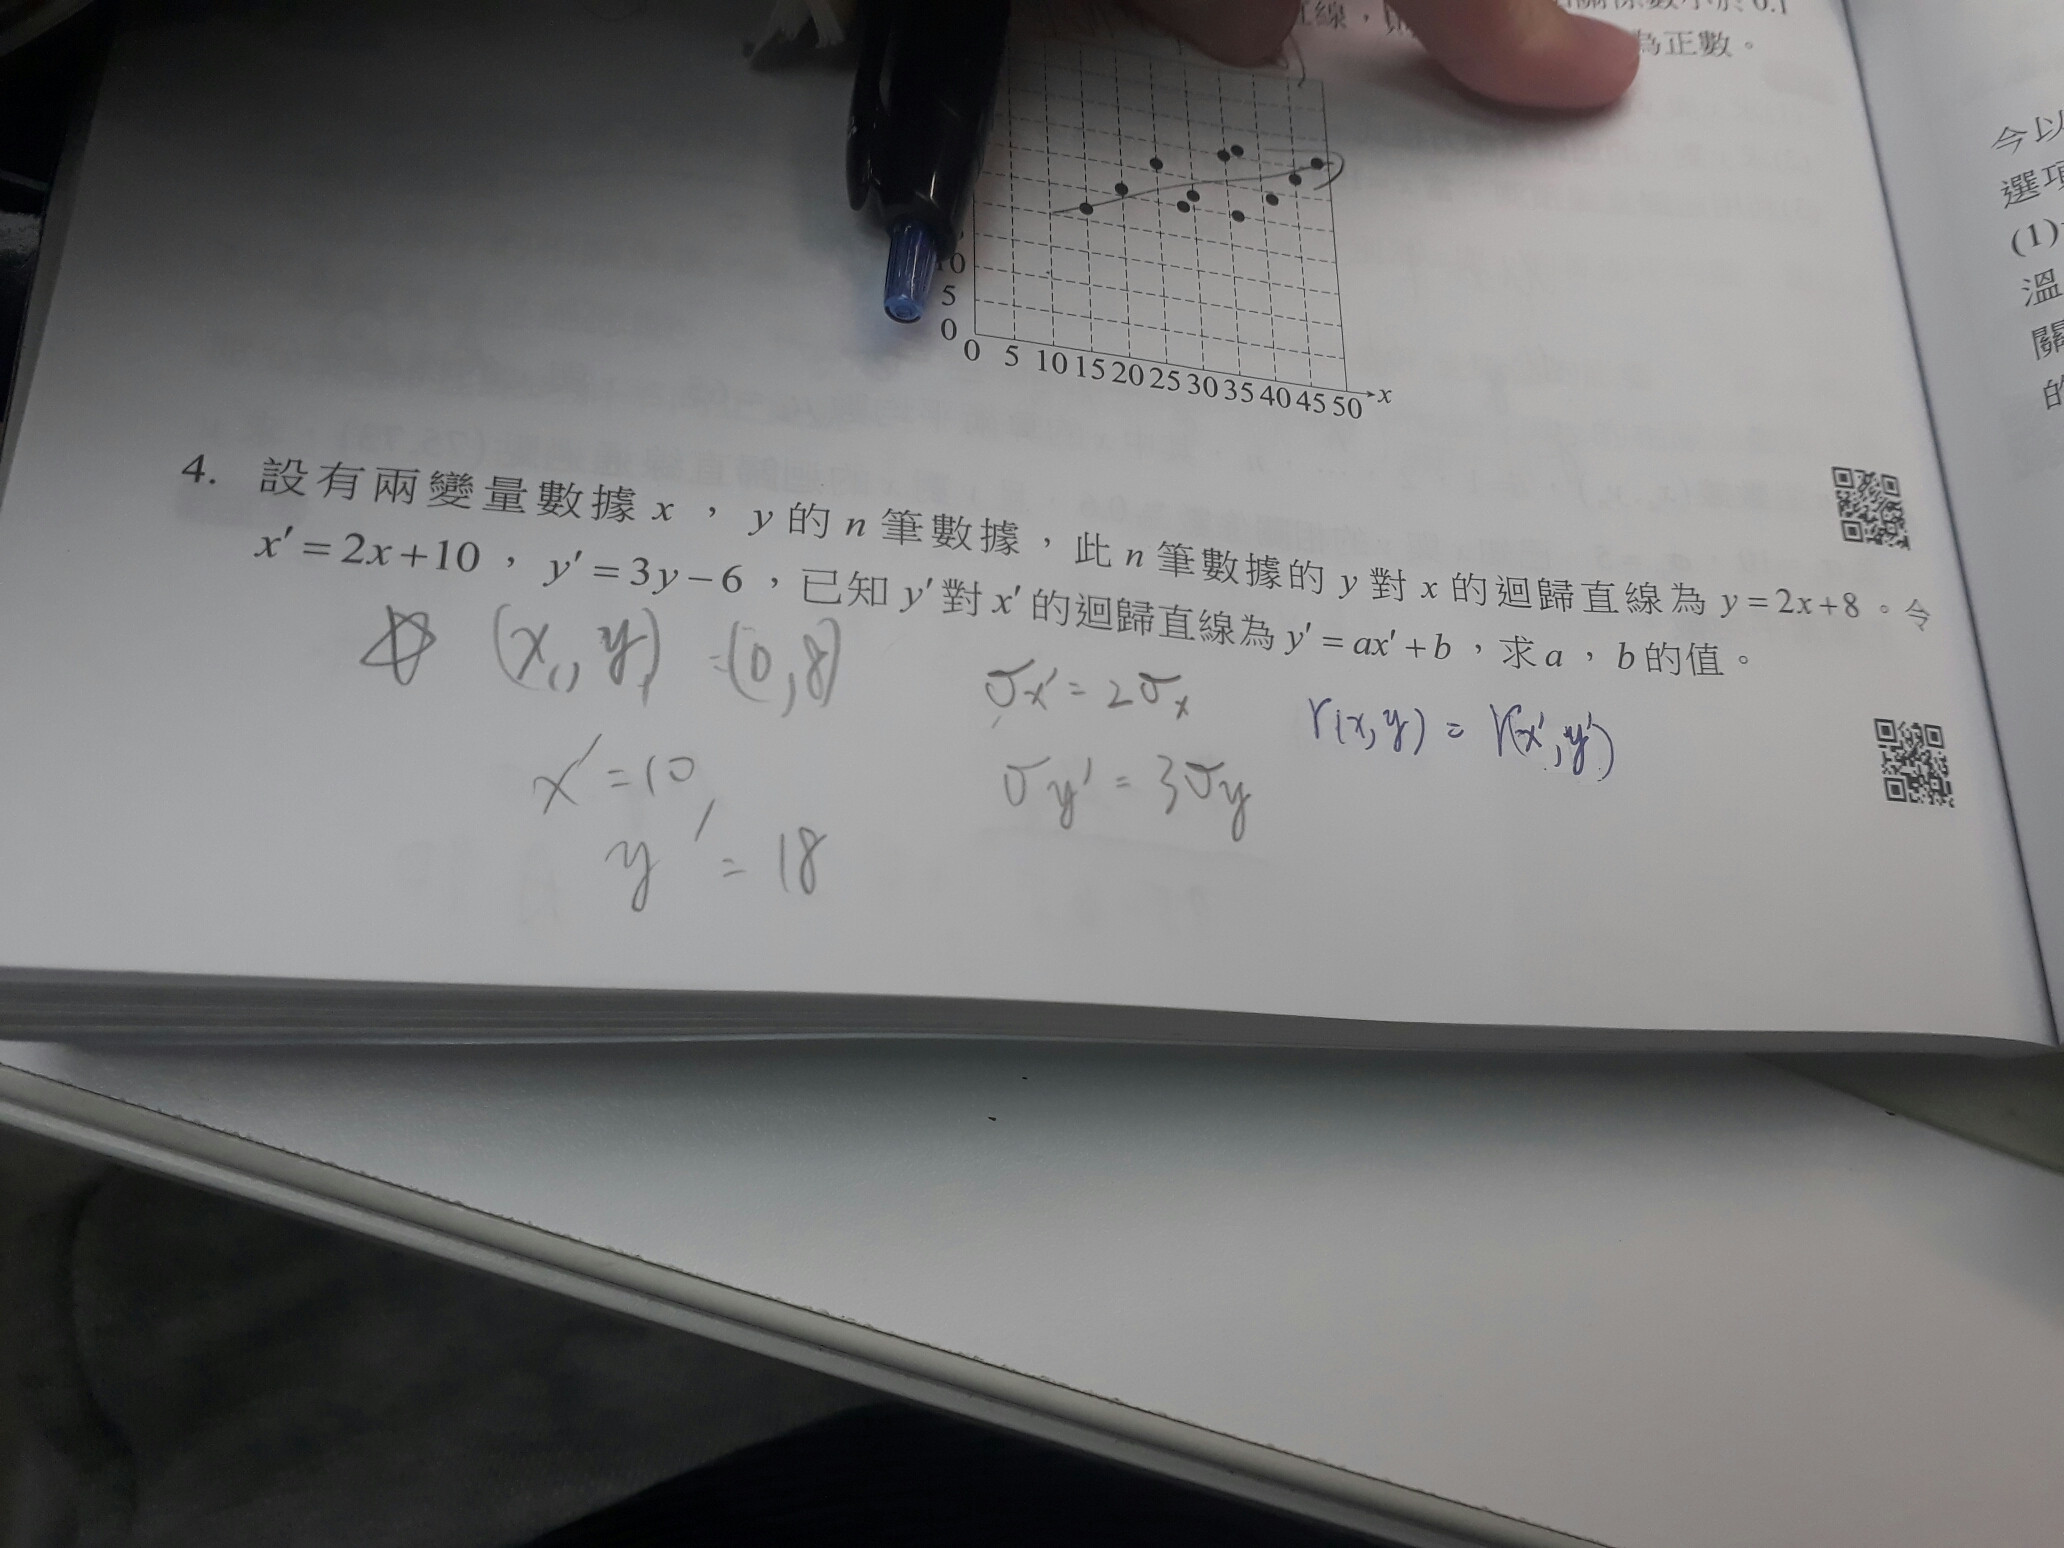 為正數。
10
5
0
0 5 10 15 20 25 30 35 40 45 50 x
4. 設有兩變量數據 x ， y 的 n 筆數據，此 n 筆數據的 y 對 x 的迴歸直線為 y=2x+8。令
x′=2x+10 ， y′=3y−6 ，已知 y′ 對 x′ 的迴歸直線為 y′=ax′+b ，求 a ， b 的值。
(x, y) = (0,8)
x′=10,
y′=18
σx′=2σx
σy′=3σy
r(x,y) = r(x′,y′)
今以
選項
(1)
溫
關
的